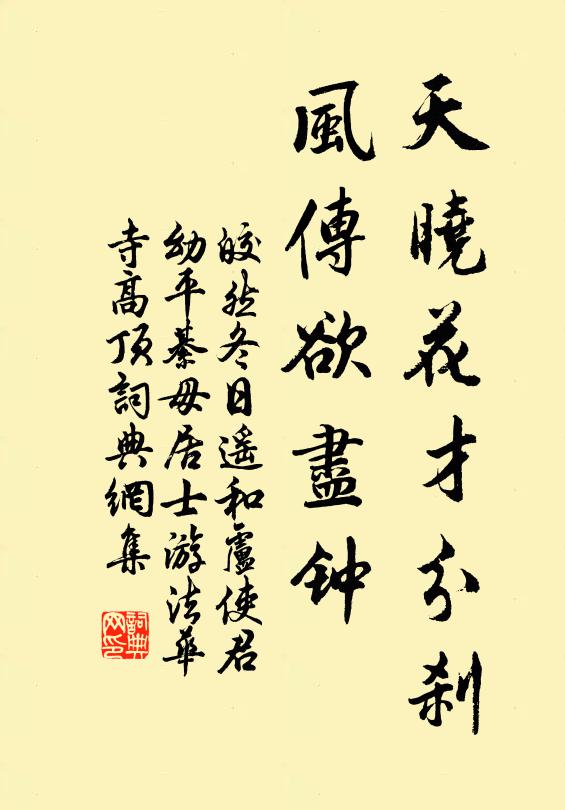 天曉花才分刹
風傳欲盡钟
皎然冬日遥和盧使君
幼平綦毋居士游法華
寺高頂詞典網集
詞典网印